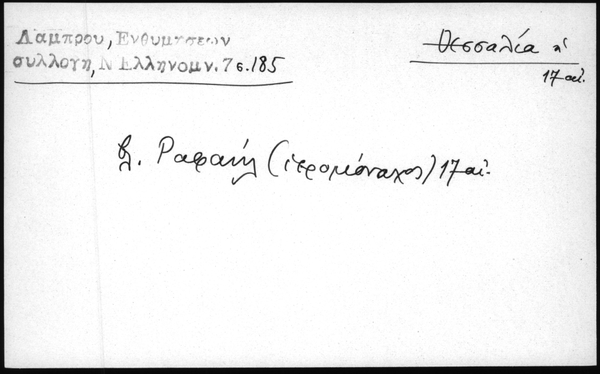 Λαμπρου, Ενθυμησεων
συλλογη, Ν Ελληνομν. 7 σ. 185
Θεσσαλία
17 αἰ.
βλ. Ραφαήλ (ἱερομόναχος) 17 αἰ.